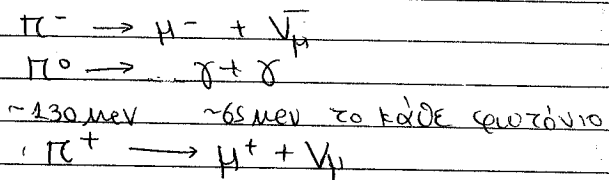 π⁻ → μ⁻ + ν̄μ
π⁰ → γ + γ
~130 MeV ~65 MeV το κάθε φωτόνιο
π⁺ → μ⁺ + νμ